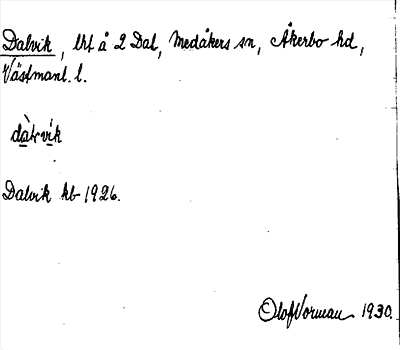 Dalvik, lht å 2 Dal, Medåkers sn, Åkerbo hd,
Västmanl. l.
dàlvik
Dalvik kb 1926.
Olof Vorman 1930.